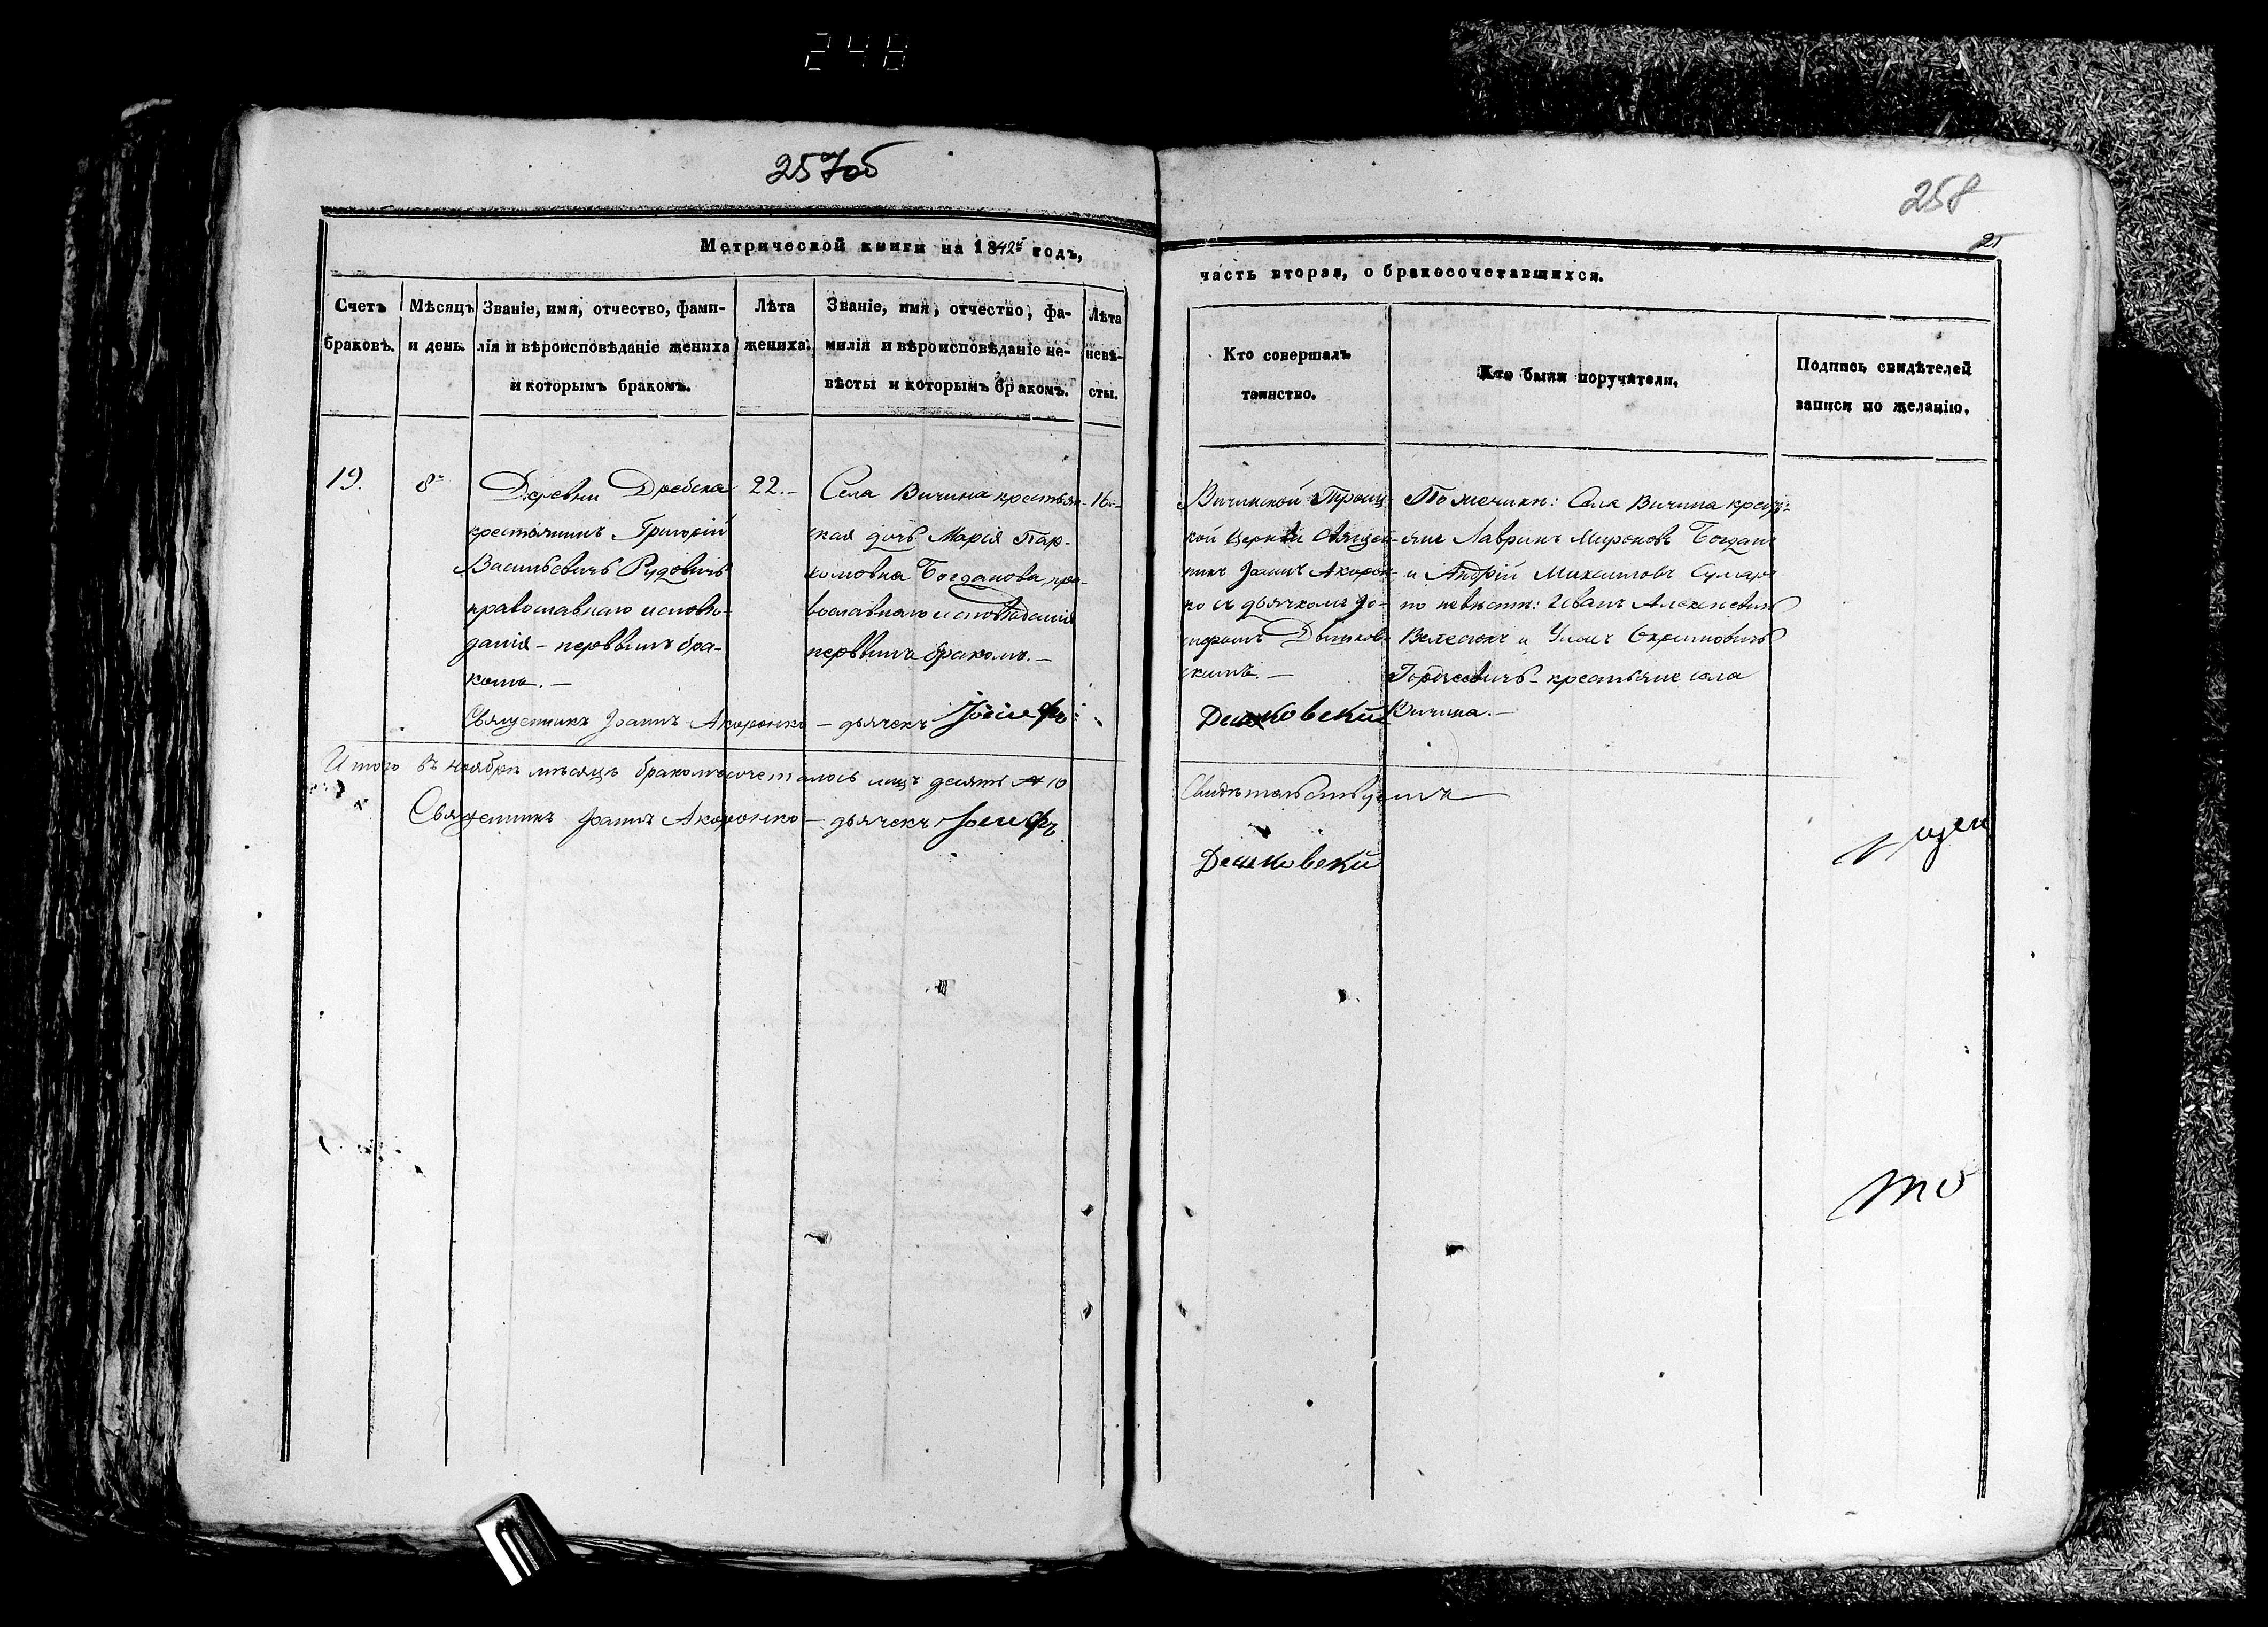 248
257об
258
21
Метрической книги на 1842й годъ,
часть вторая, о бракосочетавшихся.
Счетъ браковъ.
Мѣсяцъ и день.
Званіе, имя, отчество, фами-
лія и вѣроисповѣданіе жениха
и которымъ бракомъ.
Лѣта
жениха.
Званіе, имя, отчество, фа-
милія и вѣроисповѣданіе не-
вѣсты и которымъ бракомъ.
Лѣта
невѣ-
сты.
Кто совершалъ
таинство.
Кто были поручители.
Подпись свидѣтелей
записи по желанію.
19.
8
Деревни Дребска
крестянинъ Григорій
Васильевичъ Рудовичъ
православнаго исповѣ-
данія – первымъ бра-
комъ. –
22. –
Села Вичина крестьян-
ская дочь Марія Пар-
хомовна Богданова, пра-
вославнаго исповѣданія
первымъ бракомъ. –
16. –
Вичинской Троиц-
кой Церкви Священ-
никъ Іоаннъ Акорон-
ко съ дьячкомъ Іо-
сифомъ Дѣшков-
скимъ. –
По женихи: Села Вичина кресть-
яне Лавринъ Мироновъ Богдан
и Андрій Михаиловъ
по невѣсти: Иванъ Алексѣевичъ
Велесюкъ и
Гордѣевичъ – крестьяне села
Вичина. –
Священникъ Іоаннъ Акоронко – дьячекъ Іосифъ
Дешковскій
Итого въ ноябрѣ мѣсяцѣ бракомъ сочеталось лицъ десять 10
Свидѣтельствуемъ
Священникъ Іоаннъ Акоронко – дьячекъ Іосифъ
Дешковскій
щен
то